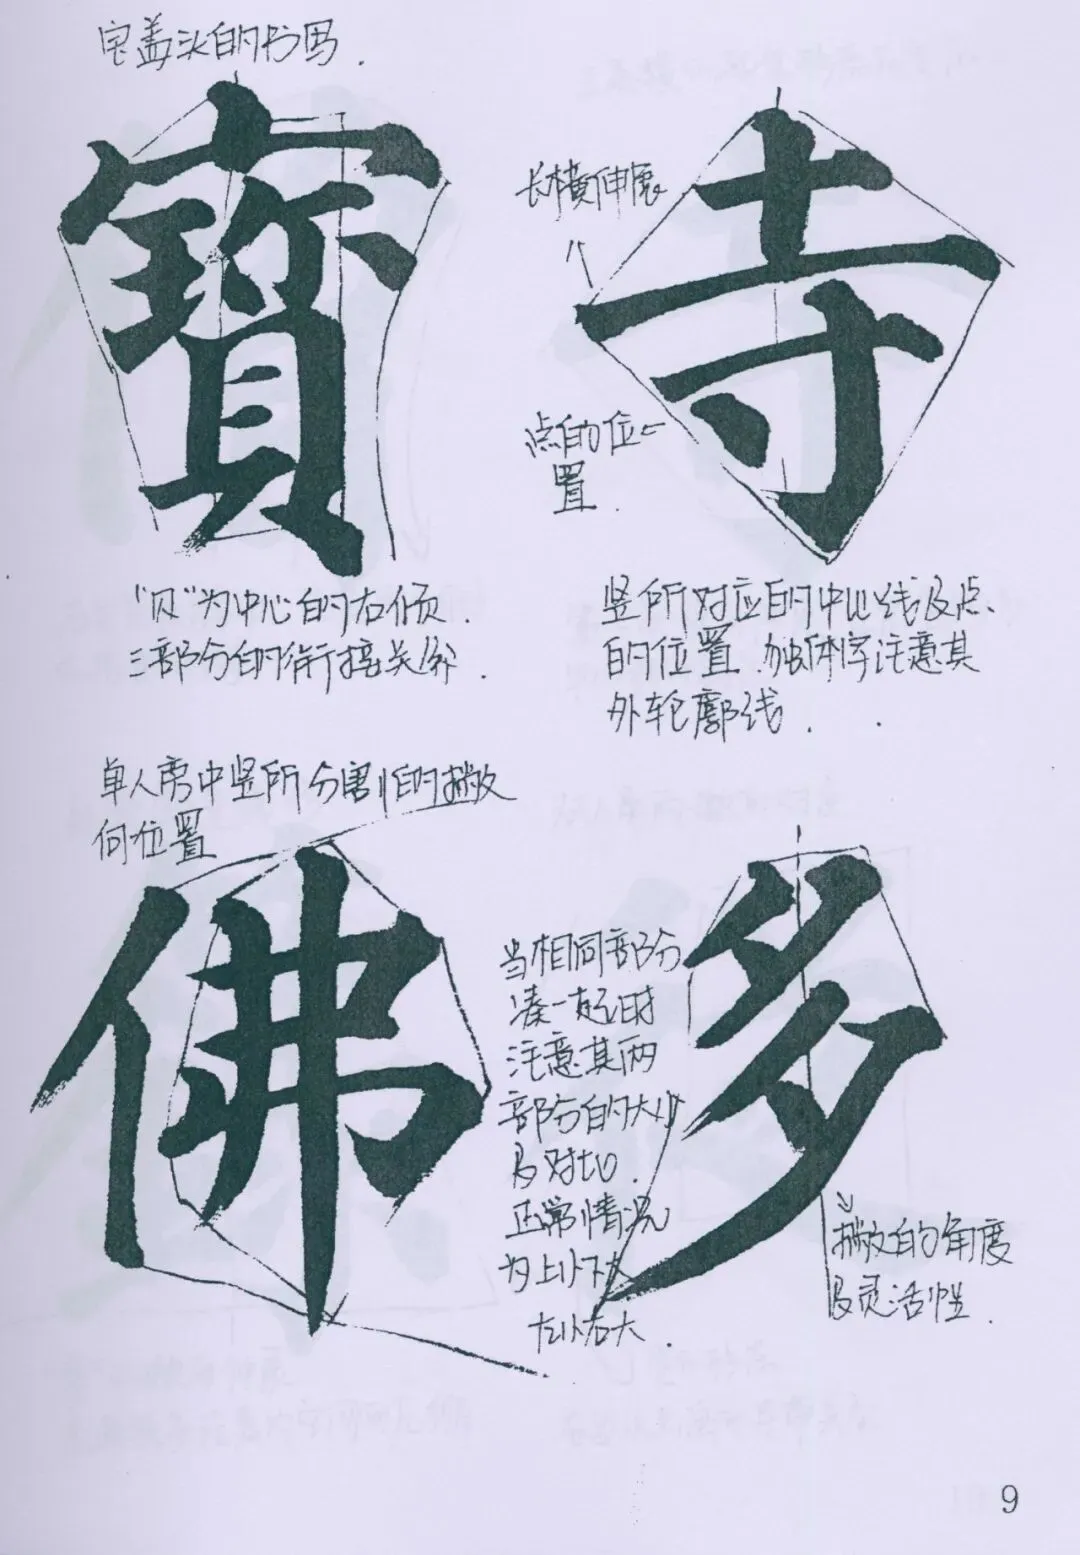 宝盖头的书写.
寶
"贝"为中心的右倾.
三部分的衔接关系.
长横伸展
寺
点的位
置.
竖所对应的中心线及点
的位置.独体字注意其
外轮廓线.
单人旁中竖所分割后的撇
的位置
佛
当相同部分
凑一起时
注意其两
部分的大小
及对切.
正常情况
为上小下大
左小右大.
多
撇的角度
及灵活性.
9